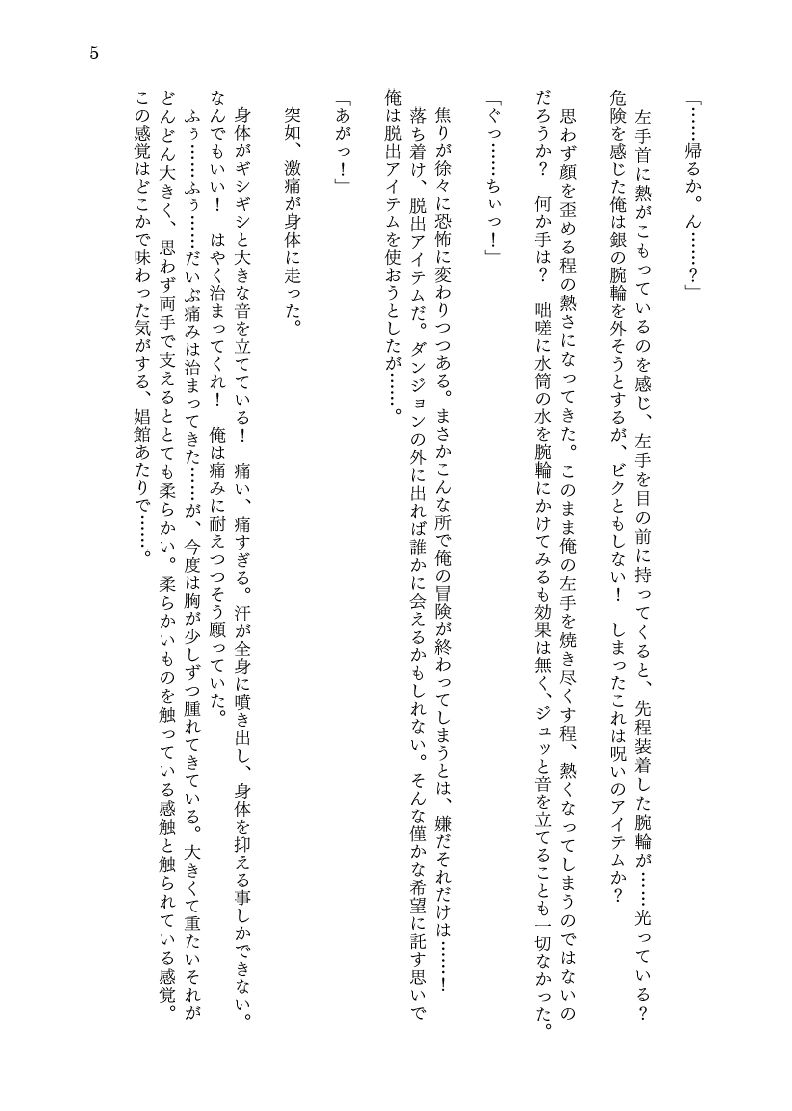 5
「……帰るか。ん……？」
左手首に熱がこもっているのを感じ、左手を目の前に持ってくると、先程装着した腕輪が……光っている？
危険を感じた俺は銀の腕輪を外そうとするが、ビクともしない！　しまったこれは呪いのアイテムか？
思わず顔を歪める程の熱さになってきた。このまま俺の左手を焼き尽くす程、熱くなってしまうのではないの
だろうか？　何か手は？　咄嗟に水筒の水を腕輪にかけてみるも効果は無く、ジュッと音を立てることも一切なかった。
「ぐっ……ちぃっ！」
焦りが徐々に恐怖に変わりつつある。まさかこんな所で俺の冒険が終わってしまうとは、嫌だそれだけは……！
落ち着け、脱出アイテムだ。ダンジョンの外に出れば誰かに会えるかもしれない。そんな僅かな希望に託す思いで
俺は脱出アイテムを使おうとしたが……。
「あがっ！」
突如、激痛が身体に走った。
身体がギシギシと大きな音を立てている！　痛い、痛すぎる。汗が全身に噴き出し、身体を抑える事しかできない。
なんでもいい！　はやく治まってくれ！　俺は痛みに耐えつつそう願っていた。
ふぅ……ふぅ……だいぶ痛みは治まってきた……が、今度は胸が少しずつ腫れてきている。大きくて重たいそれが
どんどん大きく、思わず両手で支えるととても柔らかい。柔らかいものを触っている感触と触られている感覚。
この感覚はどこかで味わった気がする、娼館あたりで……。